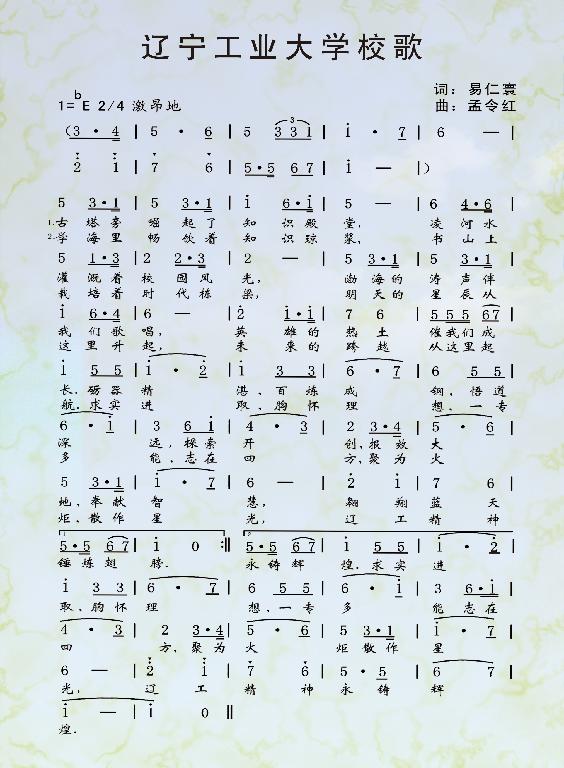 辽宁工业大学校歌
词：易仁寰
1=ᵇE 2/4 激昂地
曲：孟令红
(3·4 | 5 · 6 | 5 331 | i · 7 | 6 — |
2 1 | 7 6 | 5·5 67 | i — |)
5 3·1 | 5 3·1 | i 6·i | 5 — | 6 4·6 |
1.古塔旁 崛起了 知识殿堂， 凌河水
2.学海里 畅饮着 知识琼浆， 书山上
5 1·3 | 2 2·3 | 2 — | 5 3·1 | 5 3·1 |
灌溉着校园风光， 渤海的涛声伴
我培着时代栋梁， 明天的星辰从
i 6·4 | 6 — | 2 i·i | 7 6 | 555 67 |
我们歌唱， 英雄的热土催我们成
这里升起， 未来的跨越从这里起
i 55 | i · 2 | i 33 | 6 · 7 | 6 55 |
长.砺器精湛，百炼成钢，悟道
航.求实进取，胸怀理想，一专
6 · i | 3 6i | 4 · 3 | 2 3·4 | 5 · 6 |
深远，探索开创，报效大
多能，志在四方，聚为火
5 3·1 | i · 7 | 6 — | 2 i | 7 6 |
地，奉献智慧， 翱翔蓝天
炬，散作星光， 辽工精神
1. 2.
5·5 67 | i 0 :‖ 5·5 67 | i 55 | i · 2 |
锤炼翅膀. 永铸辉煌.求实进
i 33 | 6 · 7 | 6 55 | 6 · i | 3 6·i |
取，胸怀理想，一专多能志在
4 · 3 | 2 3·4 | 5 · 6 | 5 3·1 | i · 7 |
四方，聚为火炬散作星
6 — | 2 i | 7 6 | 5 · 5 | 6 7 |
光，辽工精神永铸辉
i — | i 0 ‖
煌.